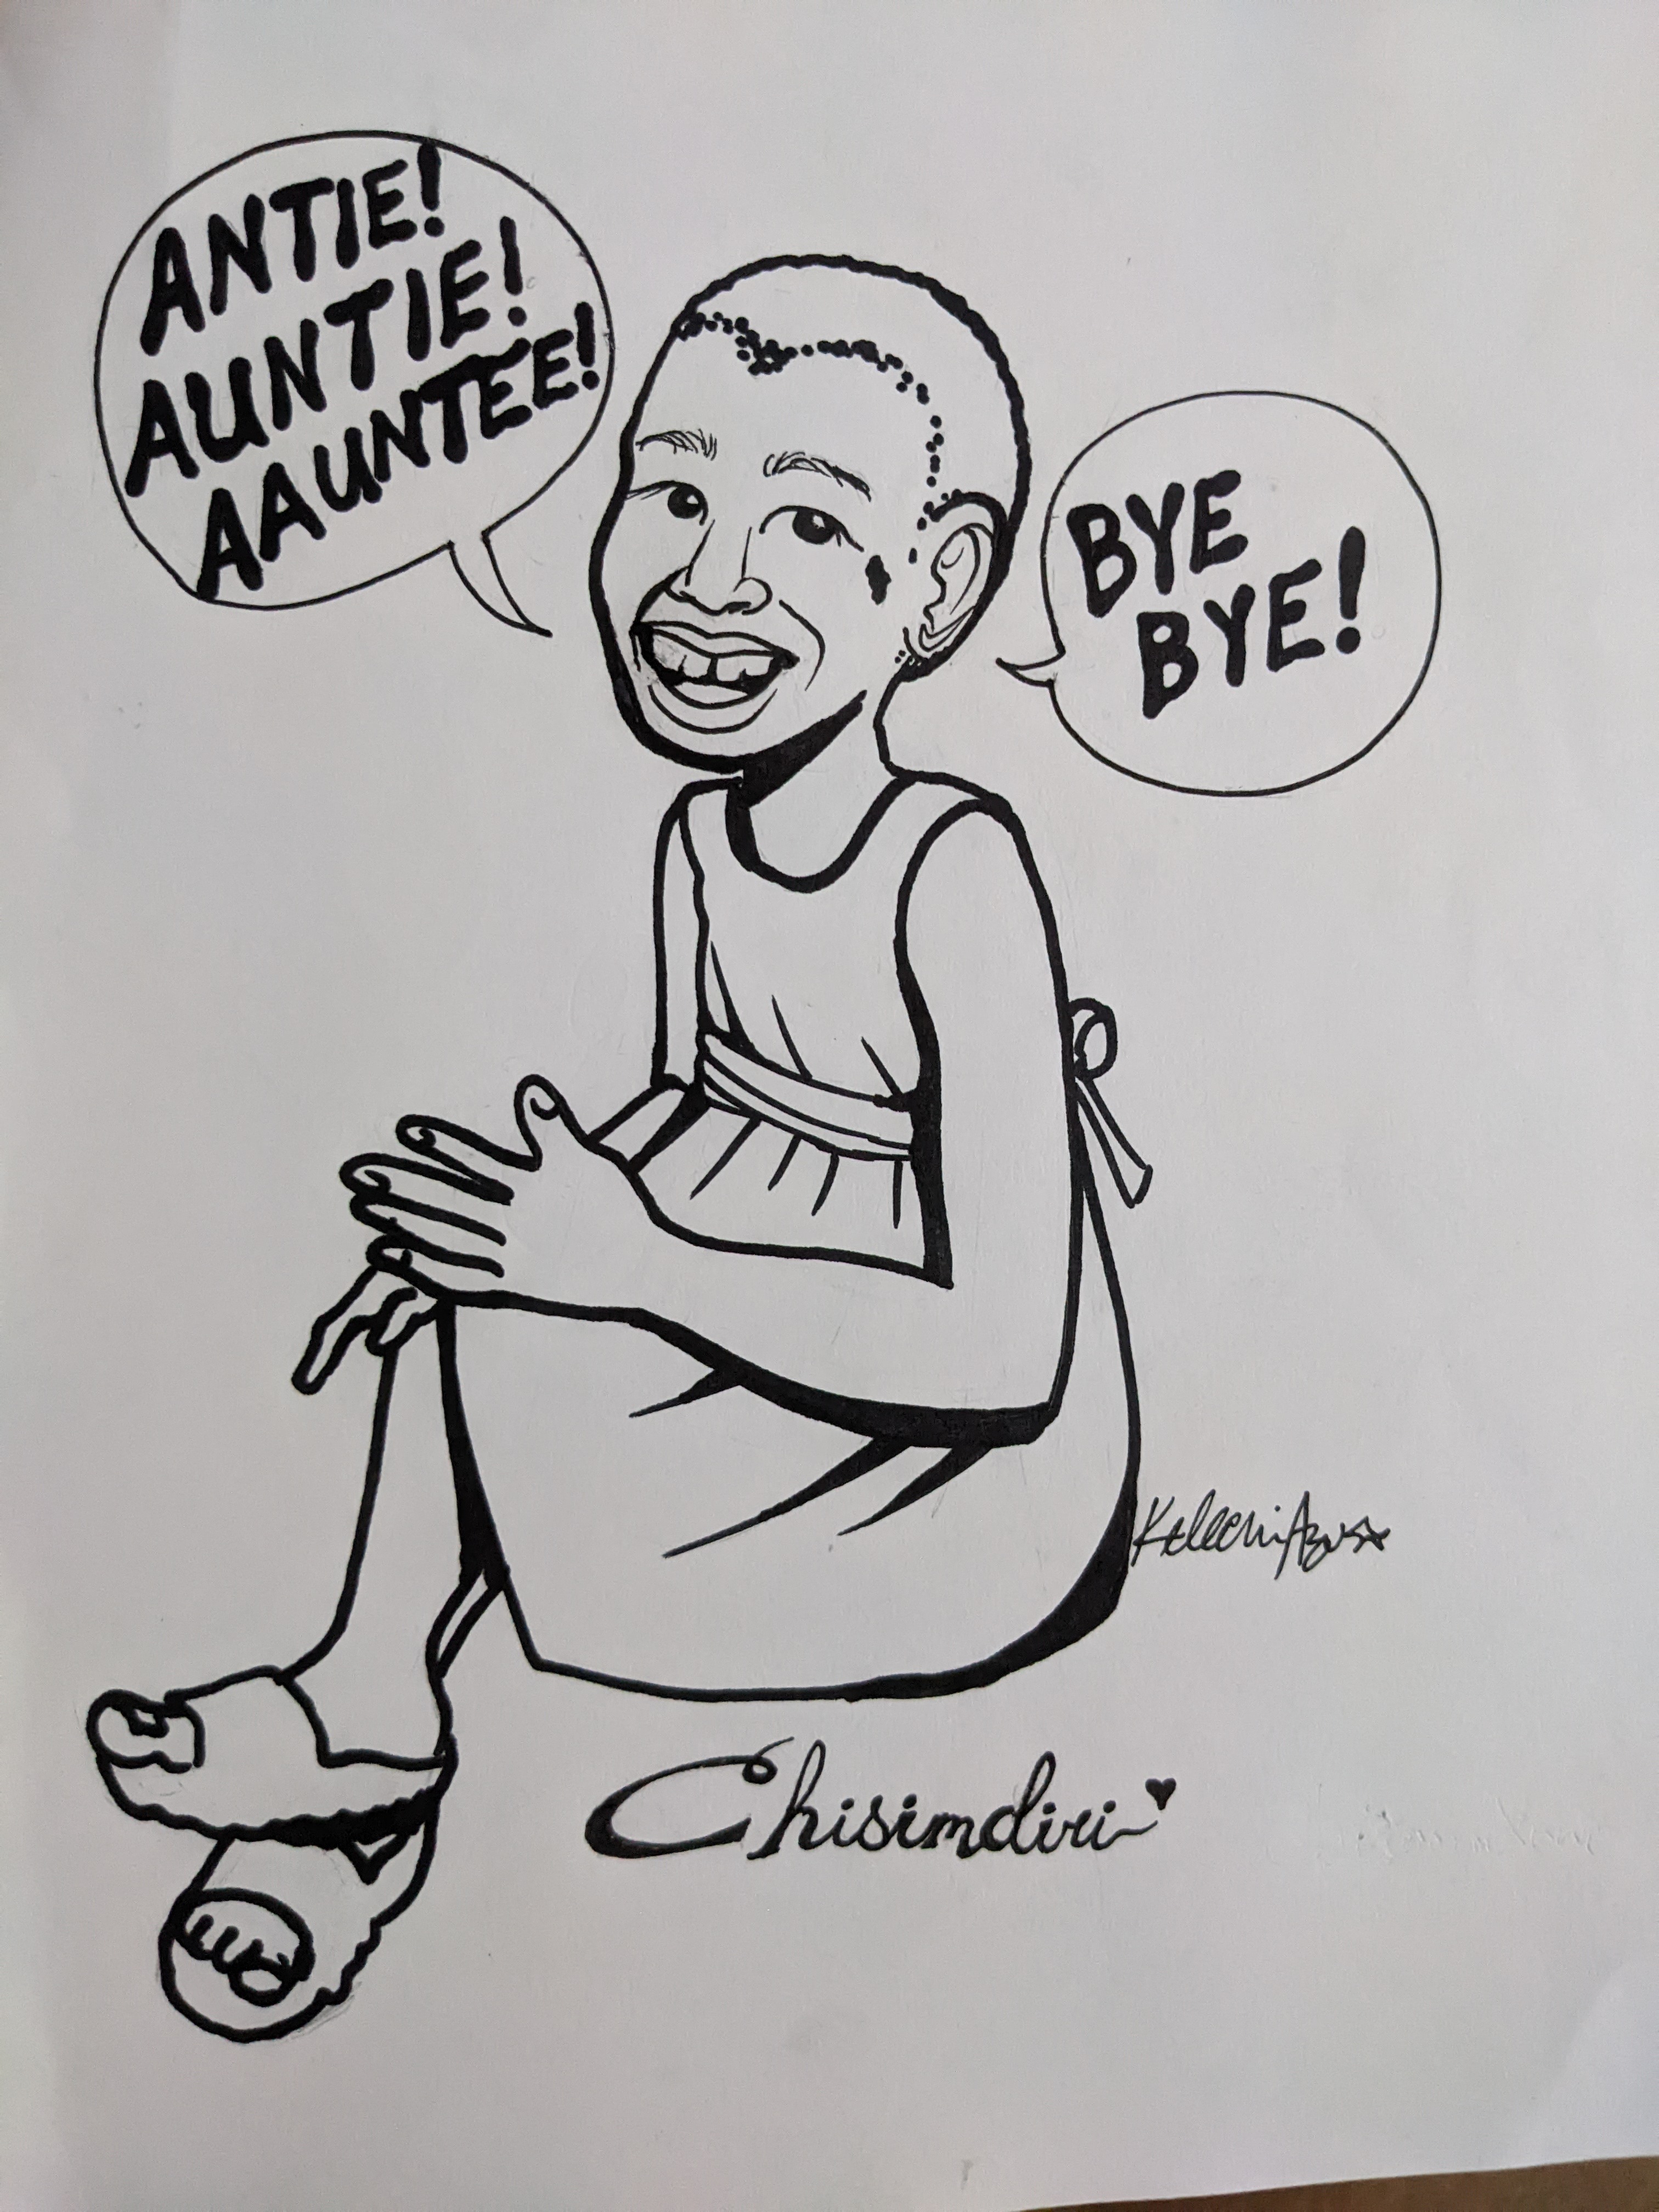 ANTIE!
AUNTIE!
AAUNTEE!
BYE
BYE!
Kelechi
Chisimdiri